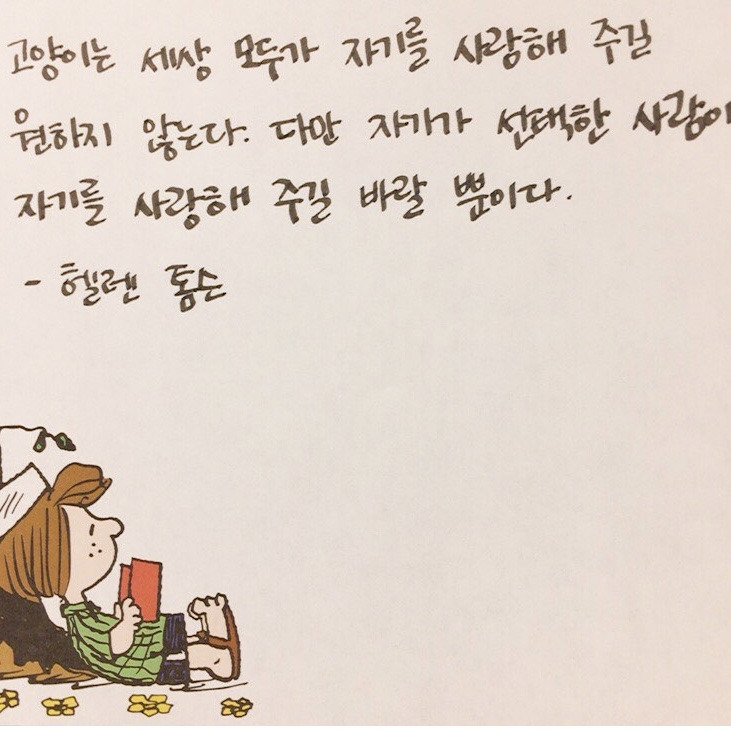 고양이는 세상 모두가 자기를 사랑해 주길
원하지 않는다. 다만 자기가 선택한 사람이
자기를 사랑해 주길 바랄 뿐이다.
- 헬렌 톰슨